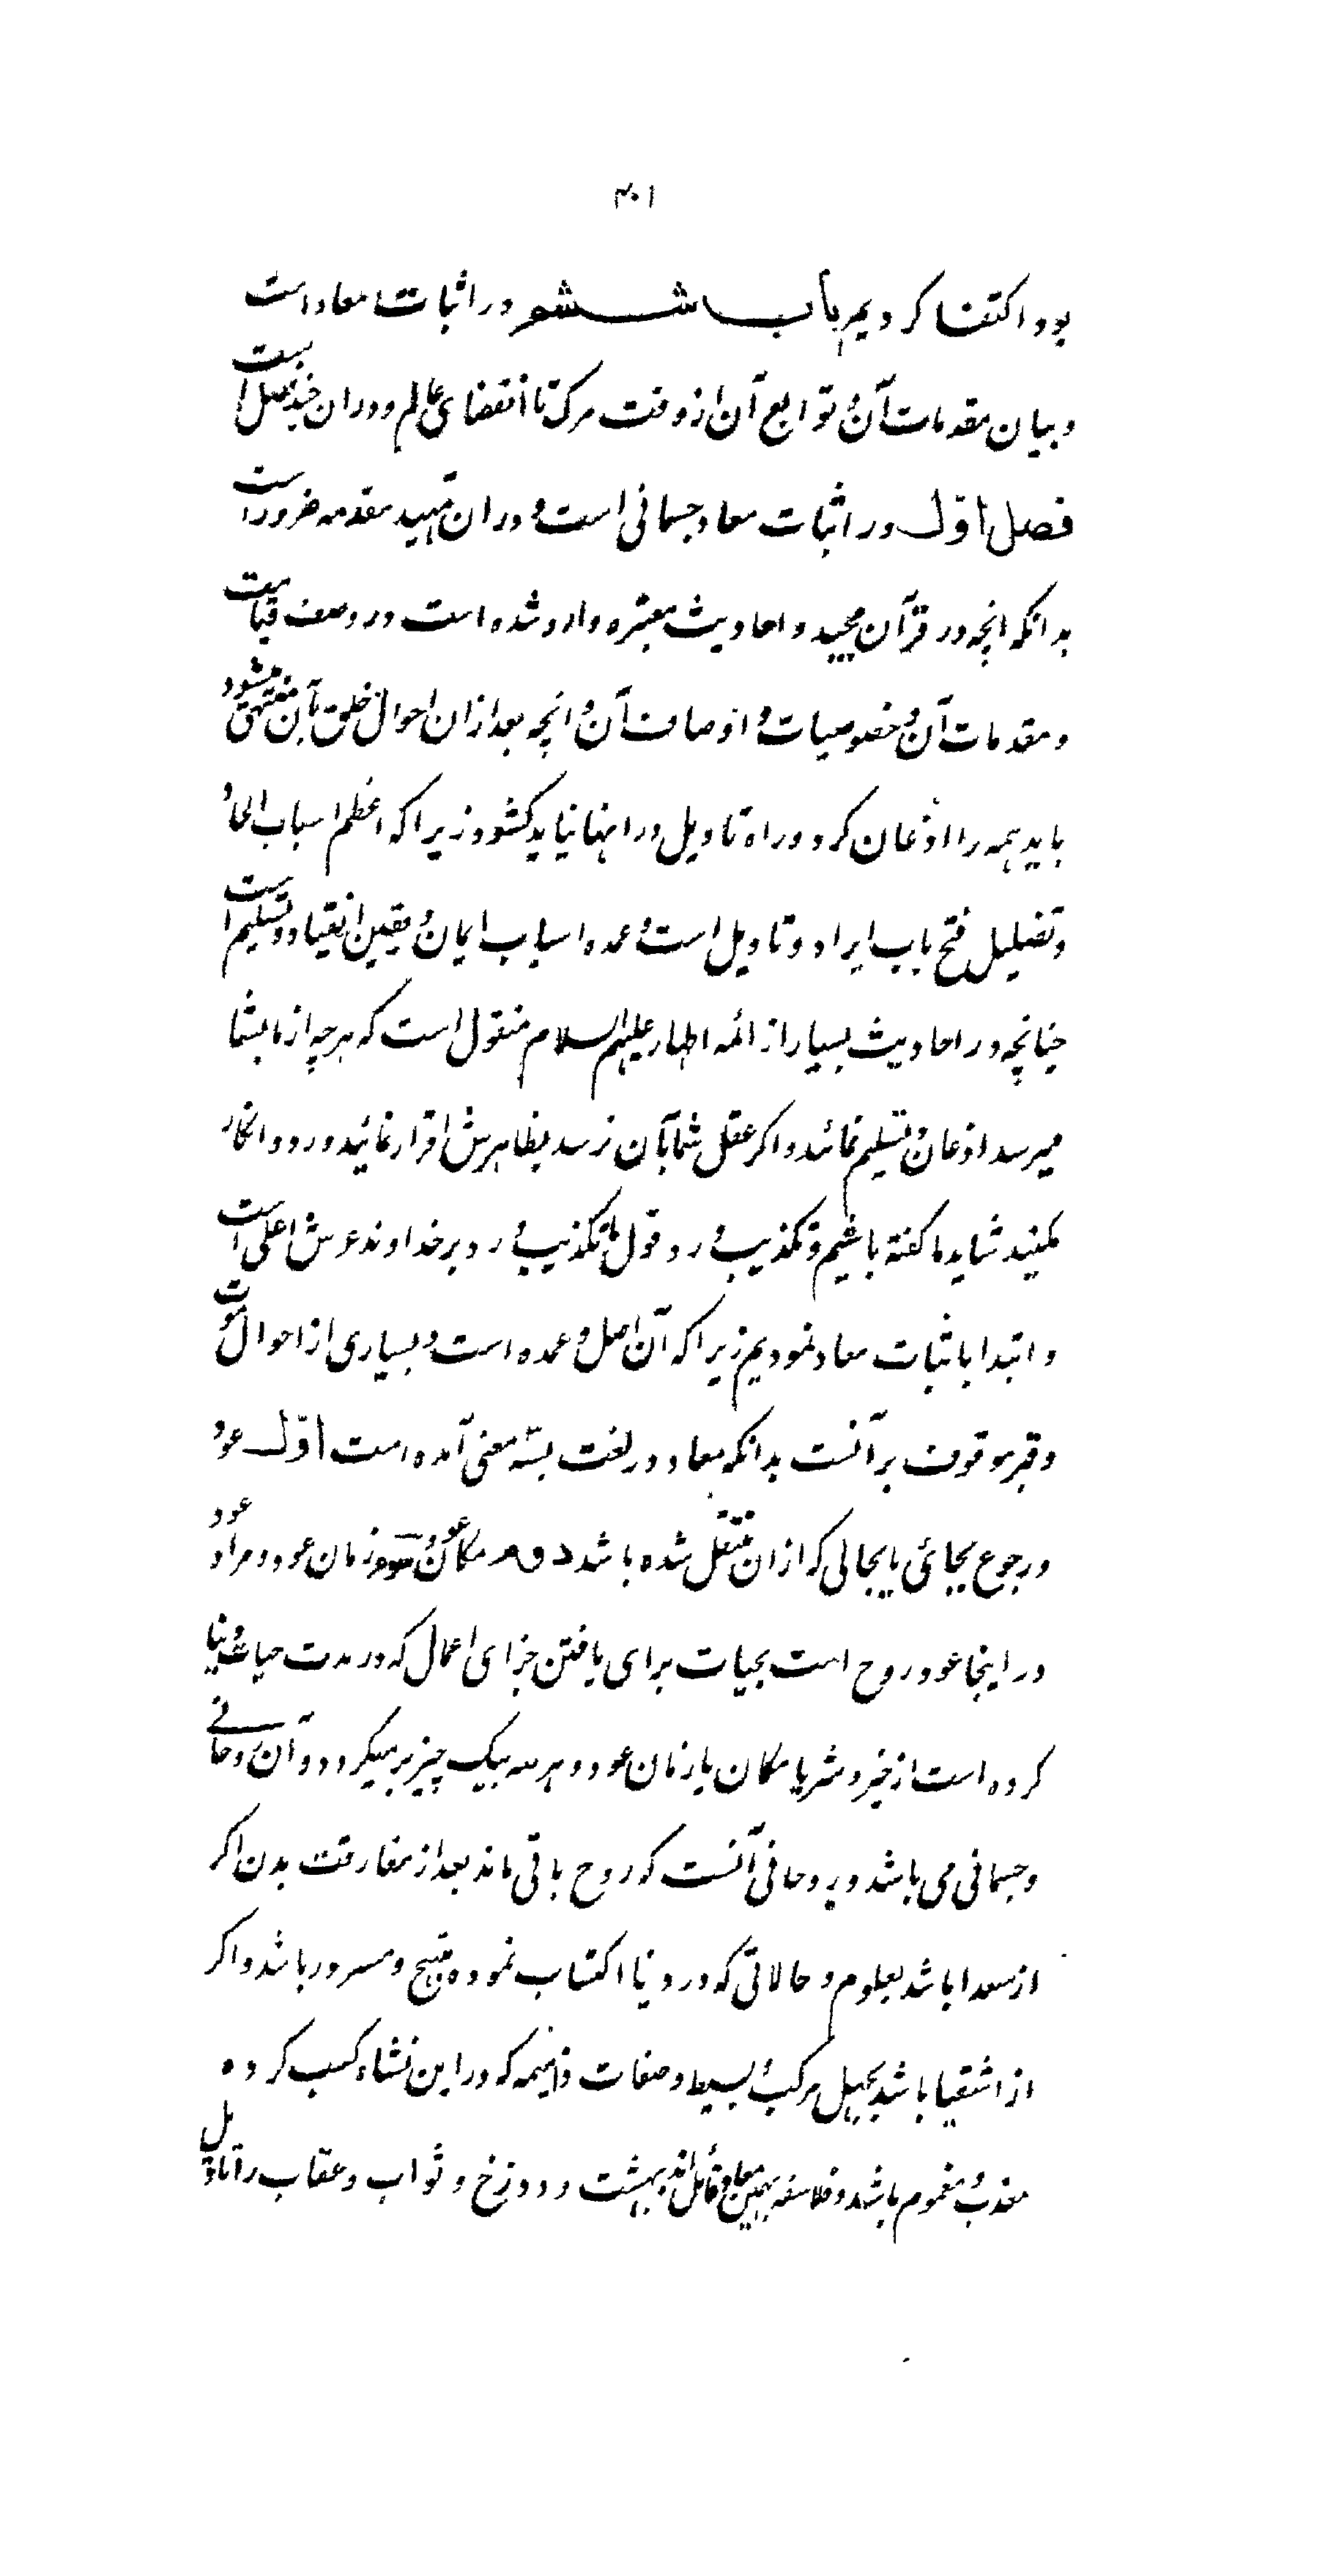 ۴۰۱
بود اکتفا کردیم باب ششم در اثبات معاد است
و بیان مقدمات آن و توابع آن از وقت مرک تا انقضای عالم و در ان چند فصل است
فصل اول در اثبات معاد جسمانی است و در ان تمهید مقدمه ضرور است
بدانکه انچه در قرآن مجید و احادیث معتبره وارد شده است در وصف قیامت
و مقدمات آن و خصوصیات و اوصاف آن و انچه بعد از ان احوال خلق بآن منتهی میشود
باید همه را اذعان کرد و راه تاویل در انها نباید کشود زیرا که اعظم اسباب الحاد
و تضلیل فتح باب ایراد و تاویل است و عمده اسباب ایمان و یقین انقیاد و تسلیم است
چنانچه در احادیث بسیار از ائمه اطهار علیهم السلام منقول است که هر چه از ما بشما
میرسد اذعان و تسلیم نمائید و اکر عقل شما بآن نرسد بظاهرش اقرار نمائید و رد و انکار
مکنید شاید ما کفته باشیم و تکذیب و رد قول ما تکذیب و رد بر خداوند عرش اعلی است
و ابتدا باثبات معاد نمودیم زیرا که آن اصل و عمده است و بسیاری از احوال موت
و قبر موقوف بر آنست بدانکه معاد در لغت بسه معنی آمده است اول عود
و رجوع بجائی یا بحالی که از ان منتقل شده باشد دوم مکان عود سوم زمان عود و مراد عود
در اینجا عود روح است بحیات برای یافتن جزای اعمال که در مدت حیات دنیا
کرده است از خیر و شر یا مکان یا زمان عود و هر سه بیک چیز بر میکردد و آن روحانی
و جسمانی می باشد و روحانی آنست که روح باقی ماند بعد از مفارقت بدن اکر
از سعدا باشد بعلوم و حالاتی که در دنیا اکتساب نموده مبتهج و مسرور باشد و اکر
از اشقیا باشد بجهل مرکب و بسیط و صفات ذمیمه که در این نشاء کسب کرده
معذب و مغموم باشد و فلاسفه بهمین معاد قائل اند و بهشت و دوزخ و ثواب و عقاب را تاویل